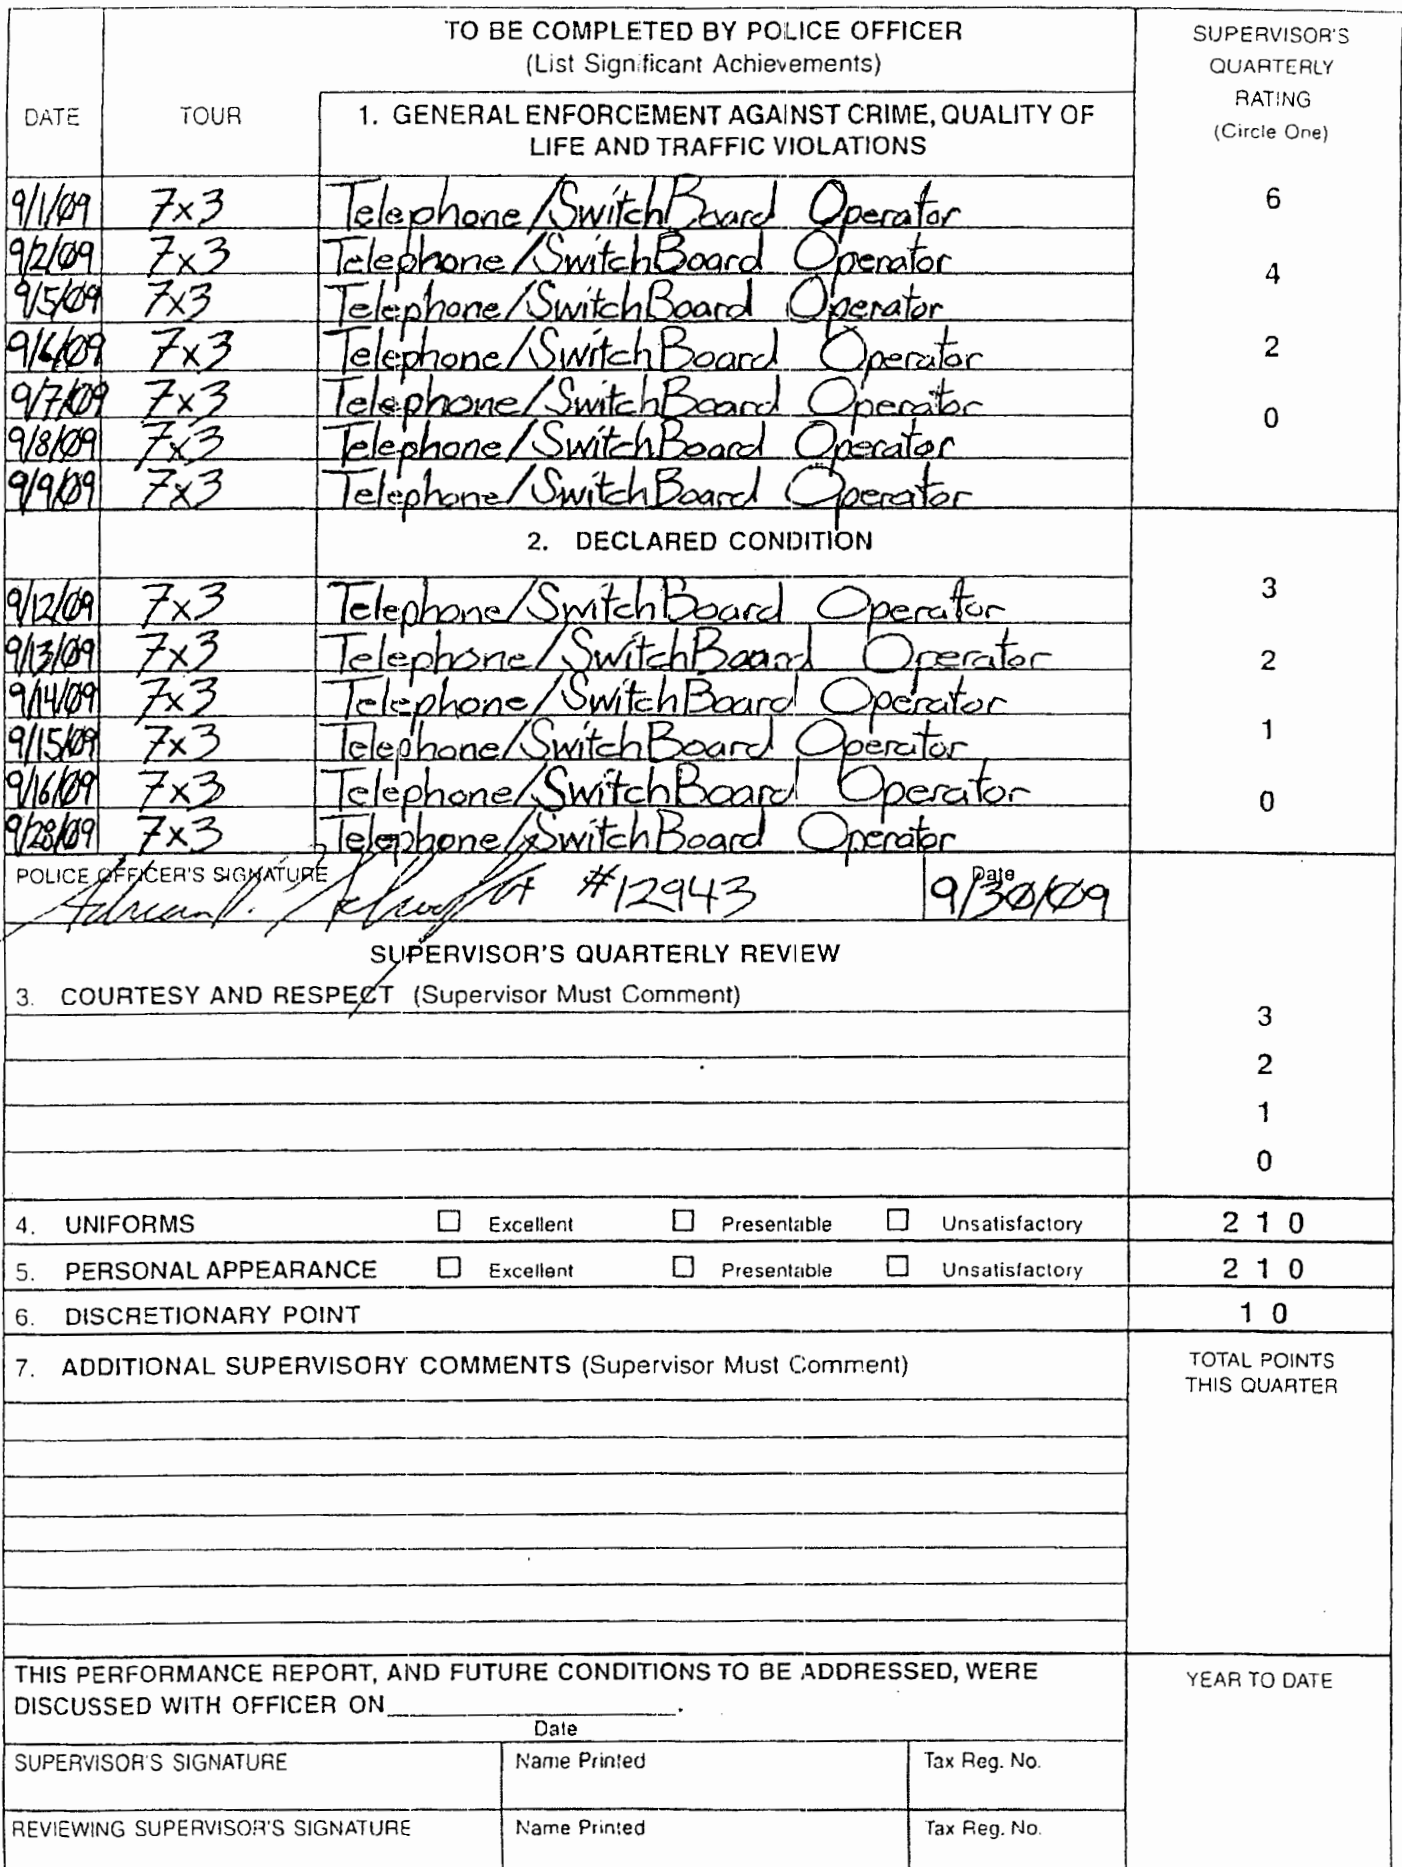 TO BE COMPLETED BY POLICE OFFICER
(List Significant Achievements)
SUPERVISOR'S
QUARTERLY
RATING
(Circle One)
DATE TOUR 1. GENERAL ENFORCEMENT AGAINST CRIME, QUALITY OF
LIFE AND TRAFFIC VIOLATIONS
9/1/09 7x3 Telephone/SwitchBoard Operator 6
9/2/09 7x3 Telephone/SwitchBoard Operator
9/5/09 7x3 Telephone/SwitchBoard Operator 4
9/6/09 7x3 Telephone/SwitchBoard Operator 2
9/7/09 7x3 Telephone/SwitchBoard Operator
9/8/09 7x3 Telephone/SwitchBoard Operator 0
9/9/09 7x3 Telephone/SwitchBoard Operator
2. DECLARED CONDITION
9/12/09 7x3 Telephone/SwitchBoard Operator 3
9/13/09 7x3 Telephone/SwitchBoard Operator 2
9/14/09 7x3 Telephone/SwitchBoard Operator
9/15/09 7x3 Telephone/SwitchBoard Operator 1
9/16/09 7x3 Telephone/SwitchBoard Operator 0
9/28/09 7x3 Telephone/SwitchBoard Operator
POLICE OFFICER'S SIGNATURE Date
#12943 9/30/09
SUPERVISOR'S QUARTERLY REVIEW
3. COURTESY AND RESPECT (Supervisor Must Comment)
3
2
1
0
4. UNIFORMS Excellent Presentable Unsatisfactory 2 1 0
5. PERSONAL APPEARANCE Excellent Presentable Unsatisfactory 2 1 0
6. DISCRETIONARY POINT 1 0
7. ADDITIONAL SUPERVISORY COMMENTS (Supervisor Must Comment)
TOTAL POINTS
THIS QUARTER
THIS PERFORMANCE REPORT, AND FUTURE CONDITIONS TO BE ADDRESSED, WERE
DISCUSSED WITH OFFICER ON .
Date
YEAR TO DATE
SUPERVISOR'S SIGNATURE Name Printed Tax Reg. No.
REVIEWING SUPERVISOR'S SIGNATURE Name Printed Tax Reg. No.